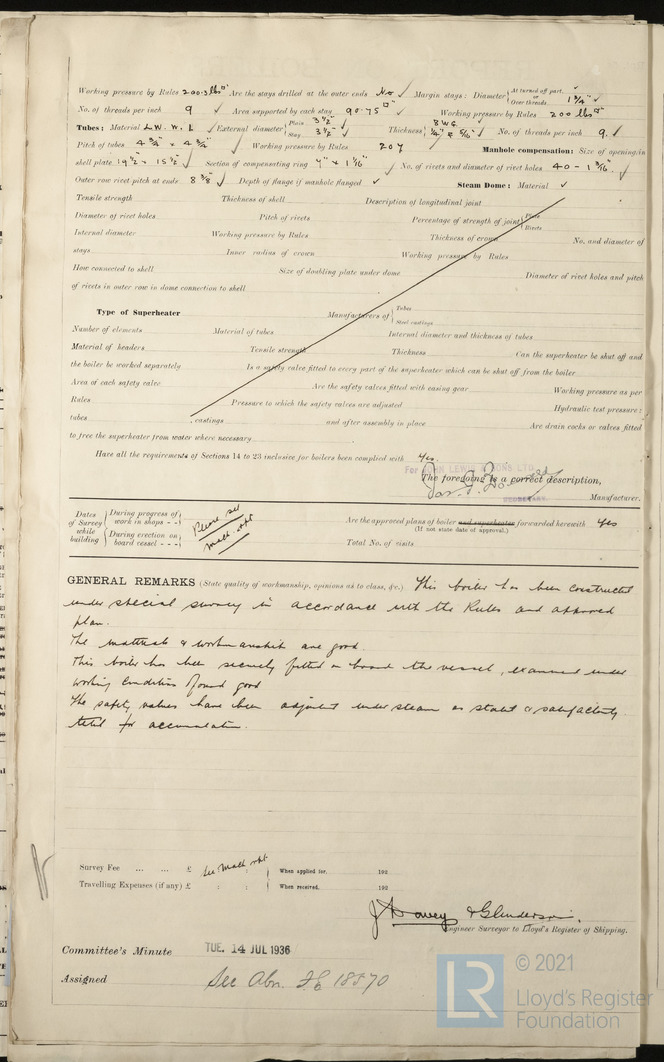 Working pressure by Rules 200.3 lbs□" Are the stays drilled at the outer ends No ✓ Margin stays: Diameter { At turned off part. ✓ or Over threads 1¾" ✓
No. of threads per inch 9 ✓ Area supported by each stay 90.75 □" Working pressure by Rules 200 lbs□"
Tubes: Material L.W.W.I. ✓ External diameter { Plain 3½" ✓ Stay 3½" ✓ Thickness { 8 WG ¼" & 5/16" ✓ No. of threads per inch 9. ✓
Pitch of tubes 4¾" x 4¾" ✓ Working pressure by Rules. 207 Manhole compensation: Size of opening in
shell plate 19½" x 15½" ✓ Section of compensating ring 7" x 1 1/16" ✓ No. of rivets and diameter of rivet holes 40 - 1 3/16" ✓
Outer row rivet pitch at ends 8⅜" ✓ Depth of flange if manhole flanged ✓ Steam Dome: Material ✓
Tensile strength Thickness of shell Description of longitudinal joint
Diameter of rivet holes Pitch of rivets Percentage of strength of joint { Plate Rivets
Internal diameter Working pressure by Rules Thickness of crown No. and diameter of
stays Inner radius of crown Working pressure by Rules
How connected to shell Size of doubling plate under dome Diameter of rivet holes and pitch
of rivets in outer row in dome connection to shell
Type of Superheater Manufacturers of { Tubes Steel castings
Number of elements Material of tubes Internal diameter and thickness of tubes
Material of headers Tensile strength Thickness Can the superheater be shut off and
the boiler be worked separately Is a safety valve fitted to every part of the superheater which can be shut off from the boiler
Area of each safety valve Are the safety valves fitted with easing gear Working pressure as per
Rules Pressure to which the safety valves are adjusted Hydraulic test pressure:
tubes castings and after assembly in place Are drain cocks or valves fitted
to free the superheater from water where necessary
Have all the requirements of Sections 14 to 23 inclusive for boilers been complied with Yes.
For JOHN LEWIS & SONS LTD.
The foregoing is a correct description,
SECRETARY. Manufacturer.
Dates of Survey while building { During progress of work in shops - - { During erection on board vessel - - - Please see mach. rpt Are the approved plans of boiler and superheater forwarded herewith Yes
(If not state date of approval.)
Total No. of visits
GENERAL REMARKS (State quality of workmanship, opinions as to class, &c.) This boiler has been constructed
under special survey in accordance with the Rules and approved
plan.
The materials & workmanship are good.
This boiler has been securely fitted on board the vessel, examined under
working conditions & found good
The safety valves have been adjusted under steam as stated & satisfactorily
tested for accumulation.
Survey Fee ... ... £ See Mach rpt : : When applied for, 192
Travelling Expenses (if any) £ : : When received, 192
Engineer Surveyor to Lloyd's Register of Shipping.
Committee's Minute TUE. 14 JUL 1936
Assigned See Abn. 18570
© 2021
LR Lloyd's Register
Foundation